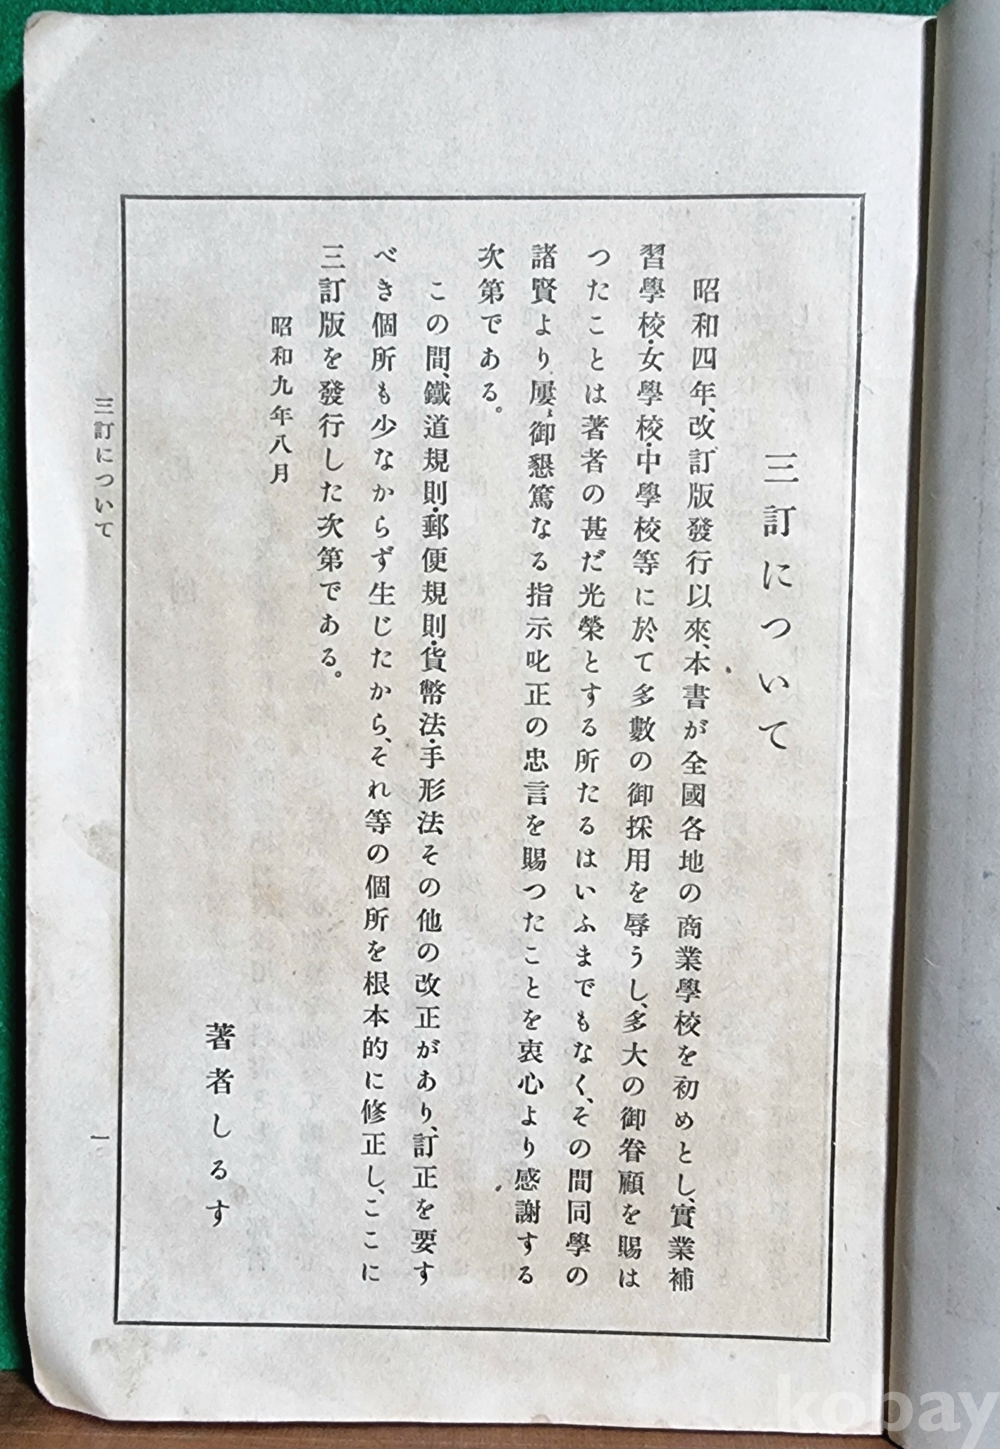 三訂について
昭和四年、改訂版發行以來、本書が全國各地の商業學校を初めとし、實業補
習學校・女學校・中學校等に於て多數の御採用を辱うし、多大の御眷顧を賜は
つたことは著者の甚だ光榮とする所たるはいふまでもなく、その間同學の
諸賢より屢〻御懇篤なる指示叱正の忠言を賜つたことを衷心より感謝する
次第である。
この間、鐵道規則・郵便規則・貨幣法・手形法その他の改正があり、訂正を要す
べき個所も少なからず生じたから、それ等の個所を根本的に修正し、ここに
三訂版を發行した次第である。
昭和九年八月
著者しるす
三訂について
一
kobay